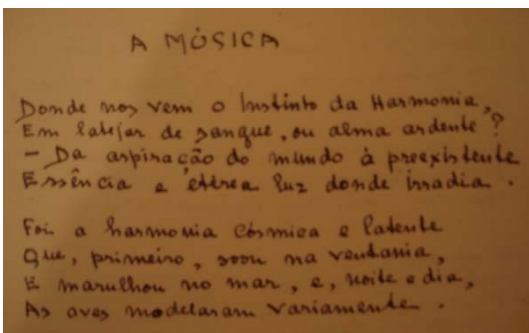 A MÚSICA
Donde nos vem o Instinto da Harmonia,
Em latejar de sangue, ou alma ardente?
- Da aspiração do mundo à preexistente
Essência e etérea luz donde irradia.
Foi a harmonia cósmica e latente
Que, primeiro, soou na ventania,
E marulhou no mar, e, noite e dia,
As aves modelaram variamente.